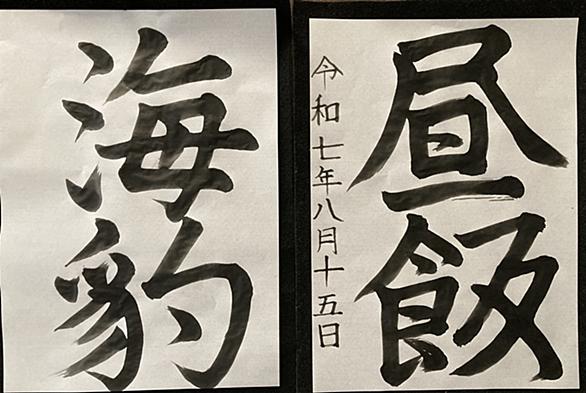 昼飯
令和七年八月十五日
海豹